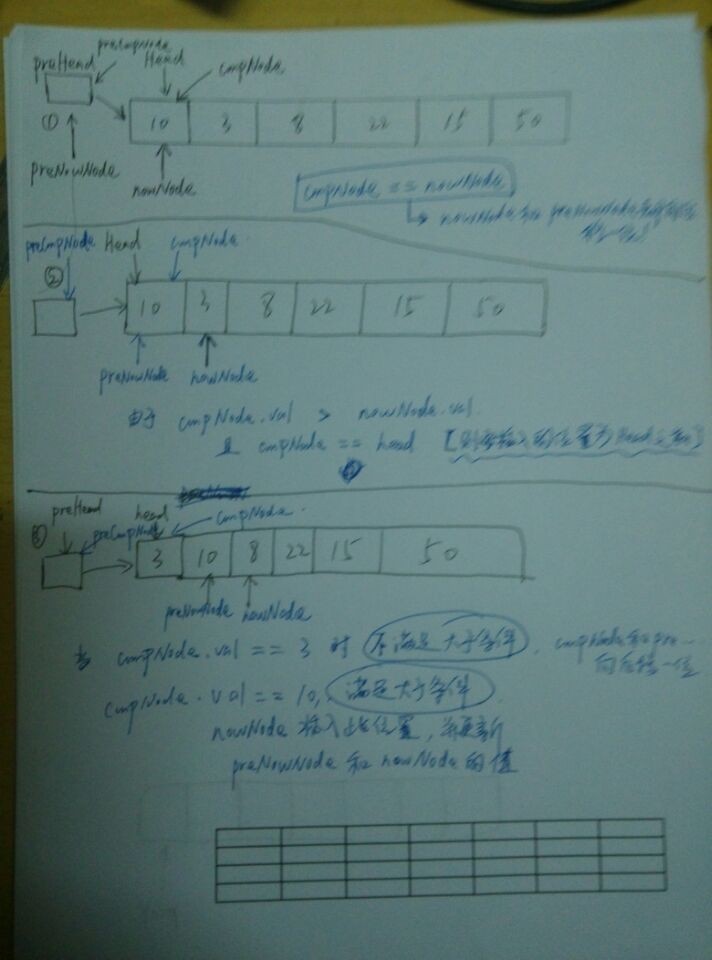 preCmpNode
preHead Head cmpNode
① 10 3 8 22 15 50
preNowNode nowNode
cmpNode == nowNode
nowNode和preNowNode
preCmpNode Head cmpNode
②
10 3 8 22 15 50
preNowNode nowNode
由于 cmpNode.val > nowNode.val
且 cmpNode == head [则要插入的位置为Head之前]
preHead head cmpNode
preCmpNode
3 10 8 22 15 50
preNowNode nowNode
当 cmpNode.val == 3 时 不满足大于条件, cmpNode和pre...
向后移一位
cmpNode.val == 10, 满足大于条件
nowNode 插入此位置, 并更新
preNowNode 和 nowNode 的值